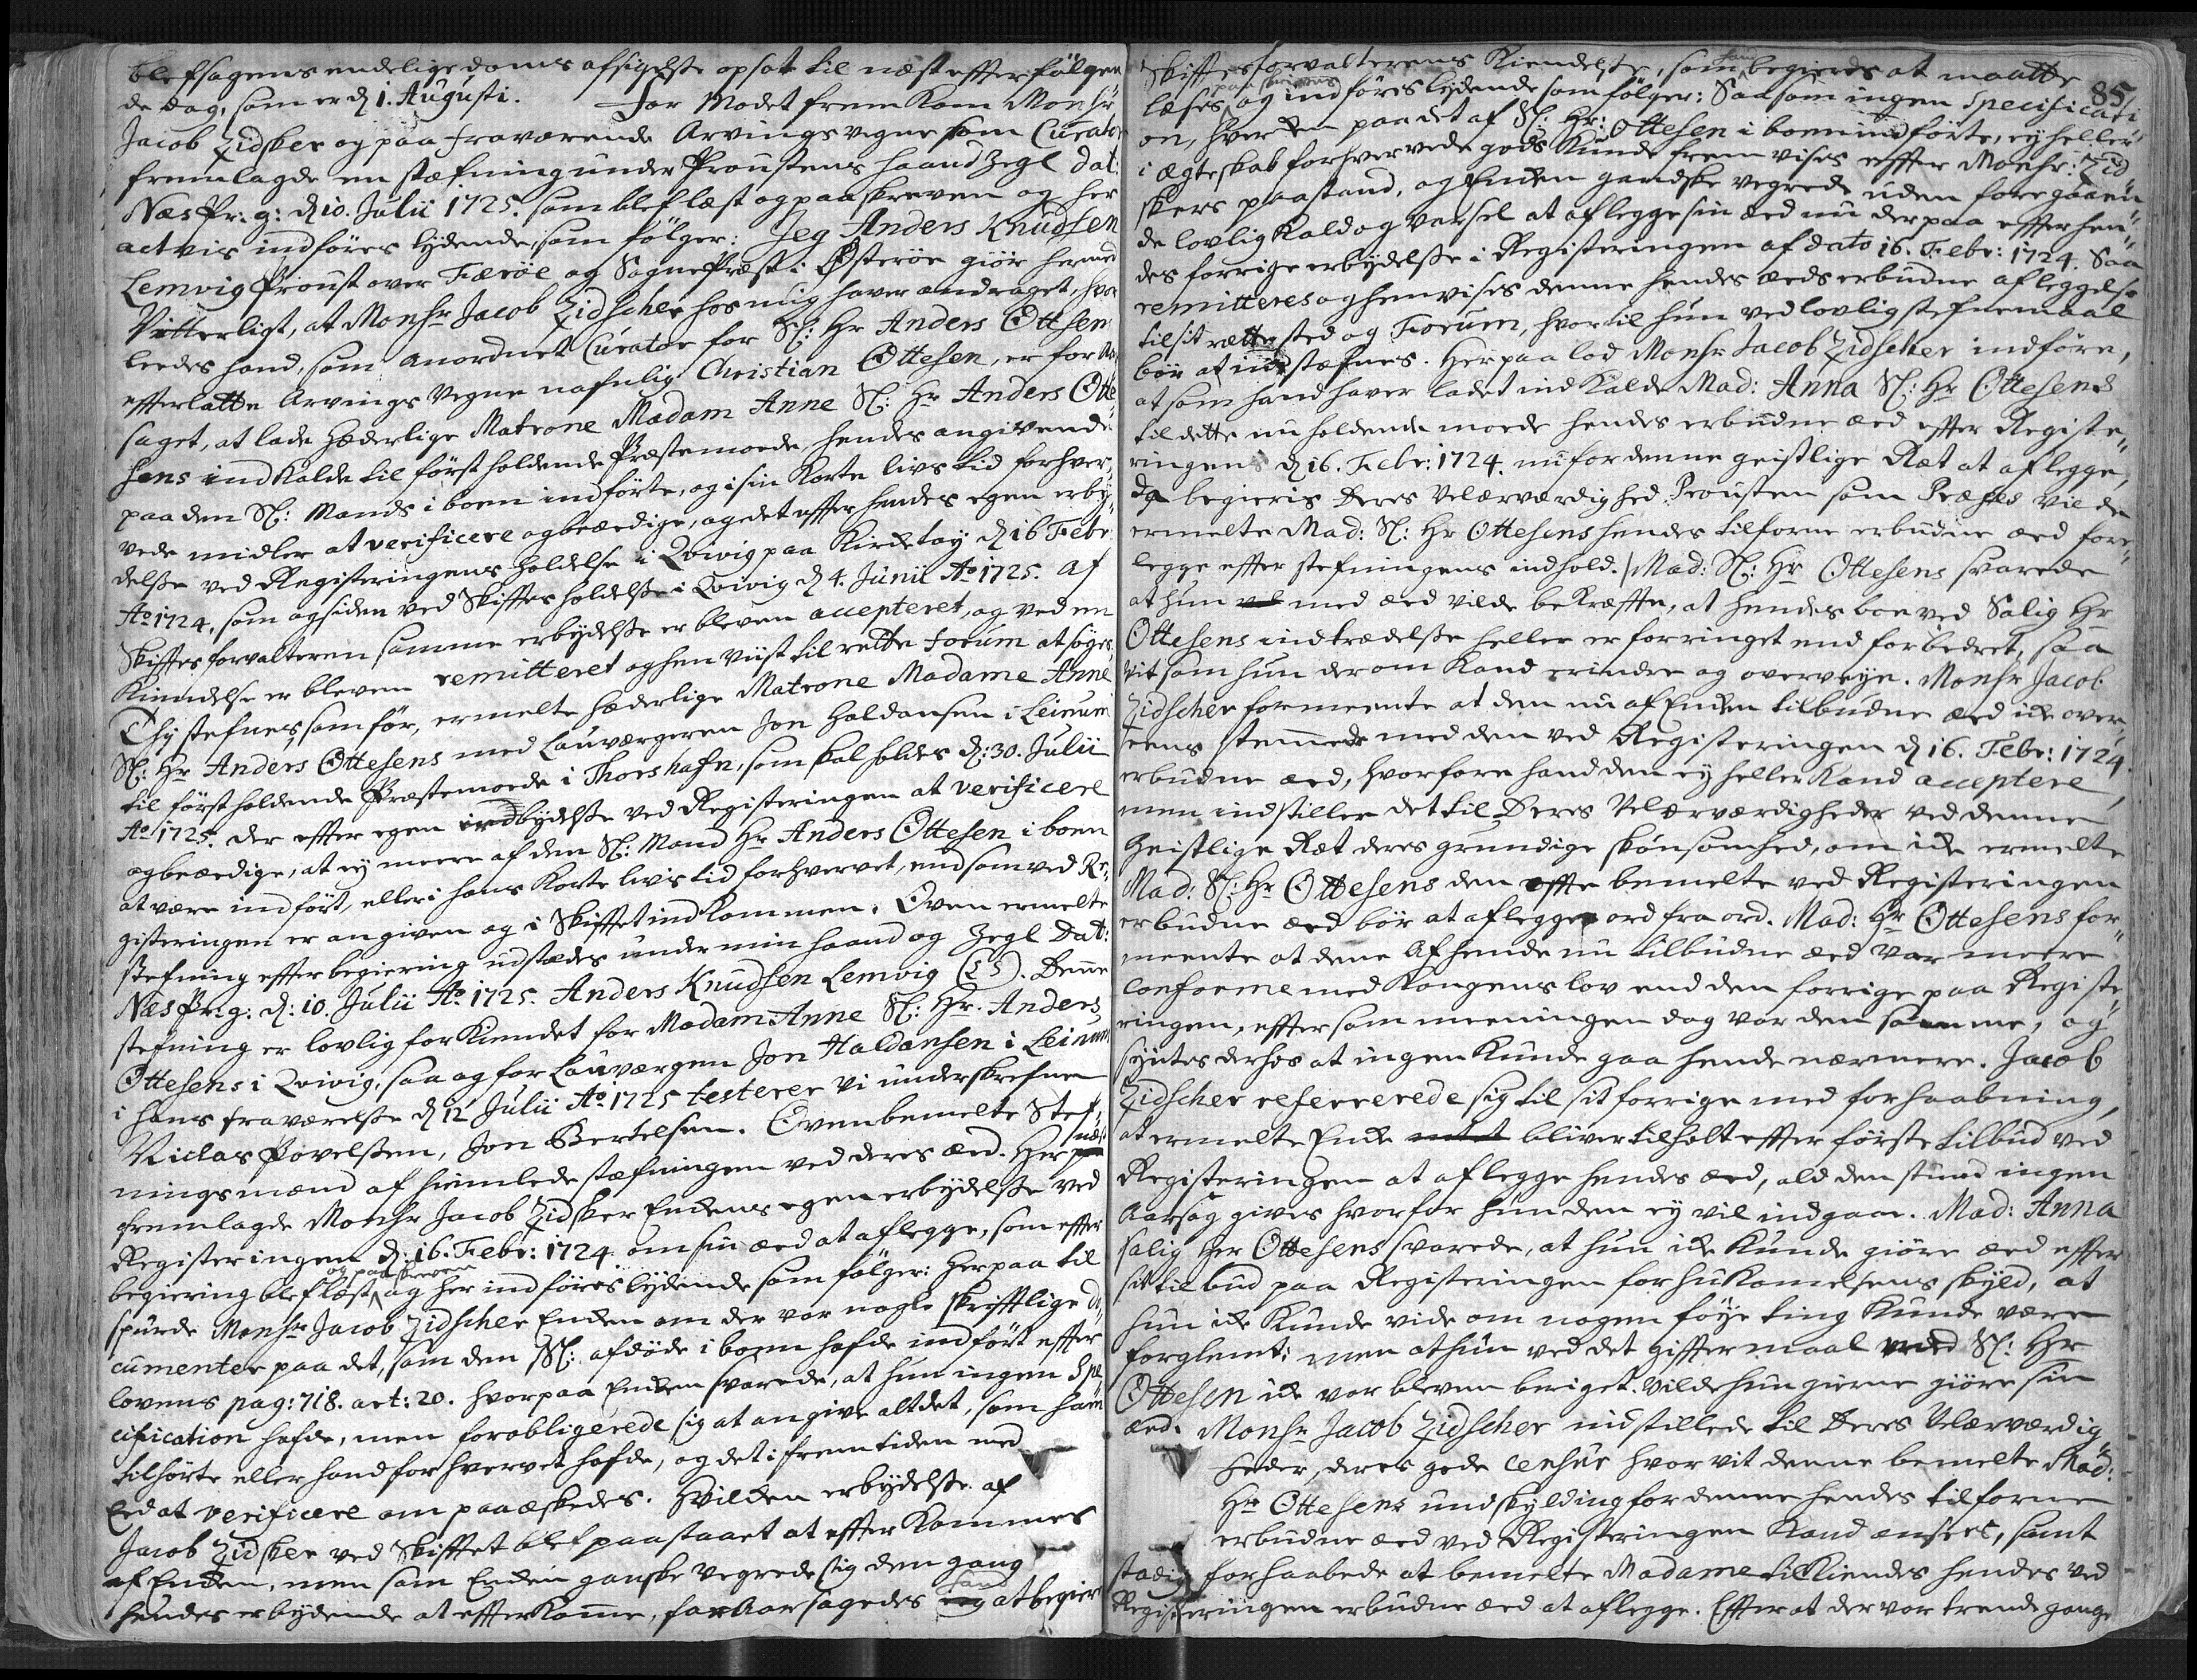 blef sagens endelige doms afsigelse opsat til næst efterfølgen
de dag, som er d 1. Augusti. For Modet frem kom Monsr
Jacob Zidsker og paa fraværende Arvings vegne som Curator
fremlagde en stæfning under Proustens haand Zegl dat:
Næs Pr: g: d 10. Julii 1725. som blef læst og paaskreven og her
actvis indføres lydende som følger: Jeg Anders Knudsen
Lemvig Proust over Færöe og SognePræst i Østerøe giör hermed
Vitterligt, at Monsr Jacob Zidscher hos mig haver andraget, hvor
leedes hand, som anordnet Curator for Sl: Hr Anders Ottesen
efterlatte Arvings Vegne nafnlig Christian Ottesen, er for Aar
saget, at lade hæderlige Matrone Madam Anne Sl: Hr Anders Otte
sens indkalde til först holdende Præstemoede hendes angivende
paa den Sl: Mands i boen indförte, og i sin Korte livs tid forhver,,
vede midler at verificere og beædige, og det effter hendes egen erby,,
delse ved Registeringens holdelse i Qvivig paa Kirketøy d 16 Febr:
Ao 1724, som og siden ved Skiftes holdelse i Qvivig d 4. Junii Ao 1725. af
Skiftes forvalteren samme erbydelse er bleven accepteret, og ved en
Kiendelse er bleven remitteret og hen viist til rette Forum at söges.
Thj stefnes, som för, ermelte hæderlige Matrone Madame Anne
Sl: Hr Anders Ottesens med Lauværgeren Jon Haldansen i Leinum
til först holdende Præstemoede i Thorshafn, som skal holdes d: 30. Julii
Ao 1725. der effter egen indbydelse ved Registeringen at verificere
og beædige, at ej meere af den Sl: Mand Hr Anders Ottesen i boen
at være indfört, eller i hans Korte livs tid forhvervet, end som ved Re,,
gisteringen er angiven og i Skiftet ind kommen. Oven ermelte
stefning effter begiering udstædes under min haand og Zegl Dat:
Næs Pr: g: d: 10. Julii Ao 1725. Anders Knudsen Lemvig (LS). Denne
stefning er lovlig forKiendet for Madam Anne Sl: Hr. Anders
Ottesens i Qvivig, saa og for Lauværgen Jon Haldansen i Leinum
i hans fraværelse d 12 Julii Ao 1725 testerer vi underskrefne
Niclas Povelsen, Jon Bertelsen. Ovenbemelte Stef,,
nings mænd af hiemlede stæfningen ved deres æed. Her næst
fremlagde Monsr Jacob Zidsker Enkens egen erbydelse ved
Registeringen d: 16. Febr: 1724. om sin æed at aflegge, som effter
begiering blef læst og paaskreven og her indføres lydende som følger: Herpaa til
spurde Monsr Jacob Zidscher Enken om der var nogle skrifftlige do,,
cumenter paa det, som den Sl: afdöde i boen hafde indfört effter
lovens pag: 718. art: 20. hvorpaa Enken svarede, at hun ingen Spe
cification hafde, men forobligerede sig at angive alt det, som ham
tilhörte eller hand forhvervet hafde, og det i fremtiden med
Eed at verificere om paaæskedes. Hvilken erbydelse af
Jacob Zidsker ved Skiftet blef paastaaet at effterkommes
af Enken, men som Enken ganske vegrede sig den gang
hendes erbydende at effterkomme, foraarsagedes hand at begiere
85
Skiftesforvalterens Kiendelse, som hand begierede at maatte
læses paaskrives og indføres lydende som følger: Saasom ingen Specificati
on, hverken paa det af Sl: Hr: Ottesen i boen indförte, ey heller
i ægteskab forhvervede gods Kunde fremvises effter Monsr: Zid,,
skers paastand, og Enken gandske vegrede uden foregaaen,,
de lovlig Kald og varsel at aflegge sin æed nu derpaa effter hen,,
des forrige erbydelse i Registeringen af dato 16. Febr: 1724. Saa
remitteres og henvises denne hendes æeds erbudne afleggelse
til sit rætte sted og Forum, hvor til hun ved lovlig stefnemaal
bör at indstæfnes. Herpaa lod Monsr Jacob Zidscher indføre,
at som hand haver ladet ind Kalde Mad: Anna Sl: Hr Ottesens
til dette nu holdende moede hendes erbudne æed effter Registe,,
ringens d 16. Febr: 1724. nu for denne geistlige Ræt at aflegge,
da begieris Deres Velærværdighed Prousten som Præses vil den
ermelte Mad: Sl: Hr Ottesens hendes tilforne erbudne æed fore,,
legge effter stefningens indhold. Mad: Sl: Hr Ottesens svarede
at hun med æed vilde bekræffte, at hendes boe ved Salig Hr
Ottesens indtrædelse heller er forringet end forbedret, saa
vit som hun derom Kand erindre og overveye. Monsr Jacob
Zidscher formeente at den nu af Enken tilbudne æed ike over,,
eens stemmede med den ved Registeringen d 16. Febr: 1724.
erbudne æed, hvorfore hand den ey heller Kand acceptere,
men indstiller det til Deres Velærværdigheder ved denne
Geistlige Ræt deres grundige skönsomhed, om ike ermelte
Mad: Sl: Hr Ottesens den offte bemelte ved Registeringen
erbudne æed bör at aflegge ord fra ord. Mad: Hr Ottesens for,,
meente at dene af hende nu tilbudne æed var meere
conforme med Kongens lov end den forrige paa Registe,,
ringen, effter som meeningen dog var den samme, og
syntes derhos at ingen Kunde gaa hende nærmere. Jacob
Zidscher refererede sig til sit forrige med forhaabning,
at ermelte Enke bliver tilholt effter förste tilbud ved
Registeringen at aflegge hendes æed, ald den stund ingen
Aarsag gives hvorfor hun den ey vil indgaa. Mad: Anna
salig Hr Ottesens svarede, at hun ike Kunde giöre æed effter
sit tilbud paa Registeringen for hukomelsens skyld, at
hun ike Kunde vide om nogen föye ting Kunde være
forglemt: men at hun ved det gifftermaal med Sl: Hr
Ottesen ike var bleven beriget. Vilde hun gierne giöre sin
æed. Monsr Jacob Zidscher indstillede til Deres Velærværdig,,
heder, deres gode censur hvor vit denne bemelte Mad:
Hr Ottesens undskylding for denne hendes tilforne
erbudne æed ved Registeringen Kand ansees, samt
stadig forhaabede at bemelte Madame tilkiendes hendes ved
Registeringen erbudne æed at aflegge. Effter at der var trende gange